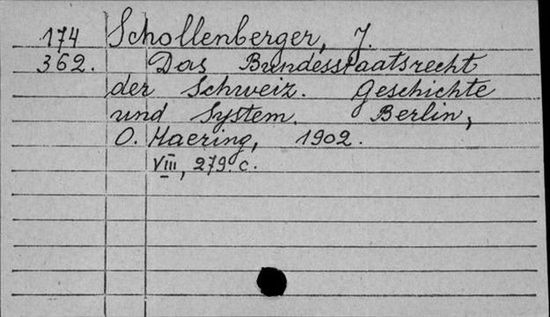 174 Schollenberger, J.
362. Das Bundesstaatsrecht
der Schweiz. Geschichte
und System. Berlin,
O. Haering, 1902.
VIII, 279. c.